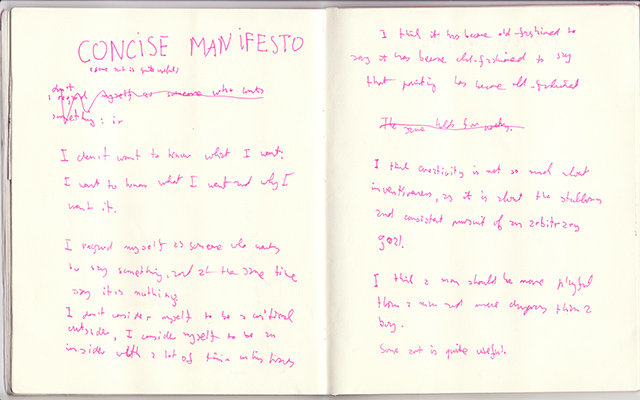 CONCISE MANIFESTO
(some art is quite useful)
don't
I regard myself as someone who wants
something:
I don't want to know what I want.
I want to know what I want and why I
want it.
I regard myself as someone who wants
to say something, and at the same time
say it is nothing.
I don't consider myself to be a critical
outsider, I consider myself to be an
insider with a lot of time on his hands
I think it has become old-fashioned to
say it has become old-fashioned to say
that painting has become old-fashioned
The same holds for
I think creativity is not so much about
inventiveness, as it is about the stubborn
and consistent pursuit of an arbitrary
goal.
I think a man should be more playful
than a and more dangerous than a
boy.
Some art is quite useful.